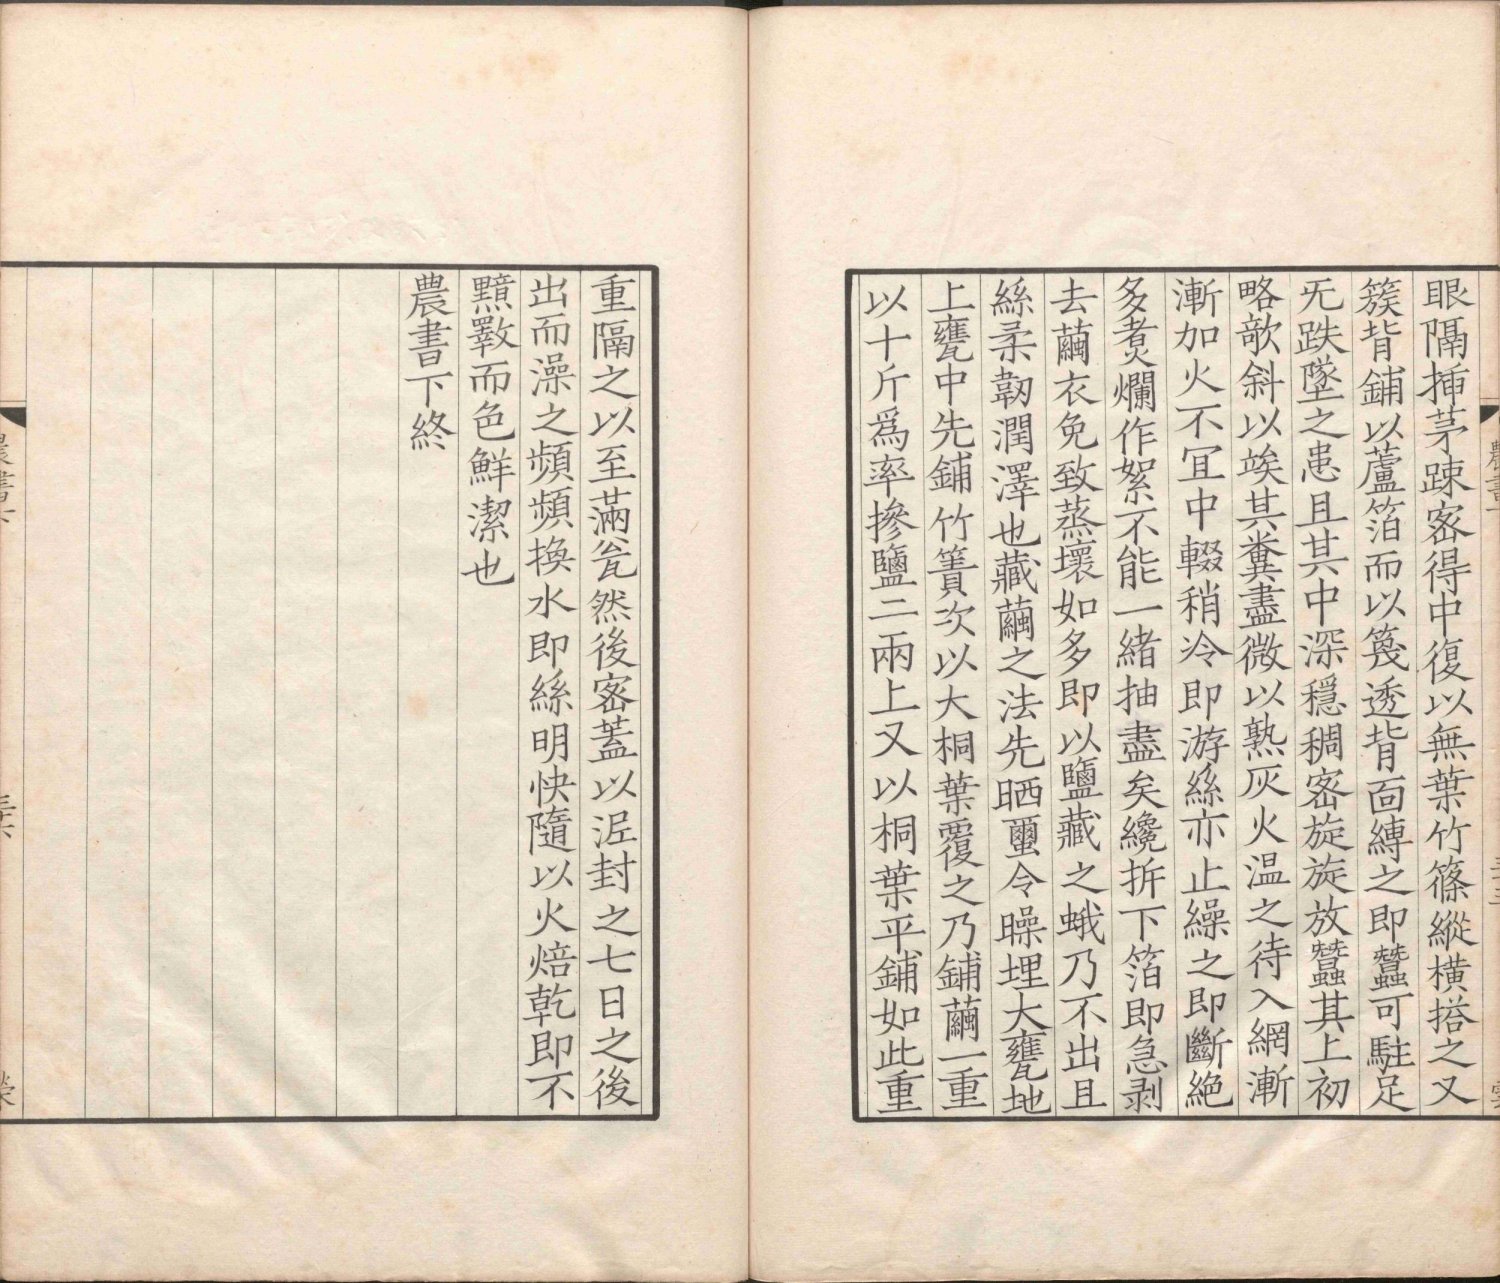 眼隔揷茅踈宻得中復以無葉竹篠縱横搭之又
簇背鋪以蘆箔而以篾透背靣縛之即蠶可駐足
无跌墜之患且其中深穩稠宻旋旋放蠶其上初
略欹斜以竢其糞盡微以熟灰火温之待入網漸
漸加火不冝中輟稍冷即游絲亦止繰之即斷絶
多煑爛作絮不能一緒抽盡矣纔拆下箔即急剥
去繭衣免致蒸壞如多即以鹽藏之蛾乃不出且
絲柔韌潤澤也藏繭之法先晒㫾令燥埋大甕地
上甕中先鋪竹簀次以大桐葉覆之乃鋪繭一重
以十斤爲率摻鹽二兩上又以桐葉平鋪如此重
重隔之以至滿瓮然後宻蓋以泥封之七日之後
出而澡之頻頻換水即絲明快隨以火焙乾即不
黦斁而色鮮潔也
農書下終